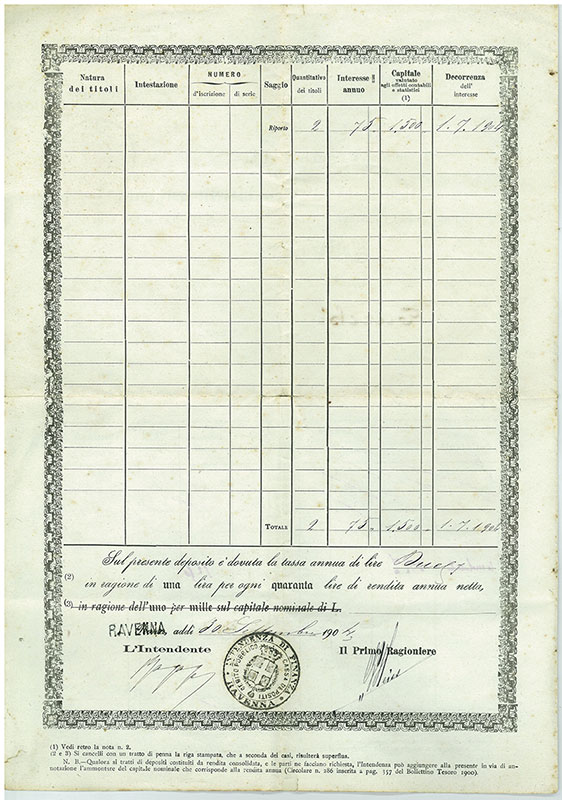 Natura dei titoli Intestazione NUMERO d'iscrizione di serie Saggio Quantitativo dei titoli Interesse annuo Capitale valutato agli effetti contabili e statistici (1) Decorrenza dell' interesse
Riporto 2 75 1.500 1.7.1904
TOTALE 2 75 1.500 1.7.1904
Sul presente deposito è dovuta la tassa annua di lire
(2) in ragione di una lira per ogni quaranta lire di rendita annua netta,
(3) in ragione dell'uno per mille sul capitale nominale di L.
RAVENNA addì 30 Settembre 1904
L'Intendente Il Primo Ragioniere
INTENDENZA DI FINANZA RAVENNA
(1) Vedi retro la nota n. 2.
(2 e 3) Si cancelli con un tratto di penna la riga stampata, che a seconda dei casi, risulterà superflua.
N. B.—Qualora si tratti di depositi costituiti da rendita consolidata, e le parti ne facciano richiesta, l'Intendenza può aggiungere alla presente in via di an-
notazione l'ammontare del capitale nominale che corrisponde alla rendita annua (Circolare n. 286 inscritta a pag. 357 del Bollettino Tesoro 1900).